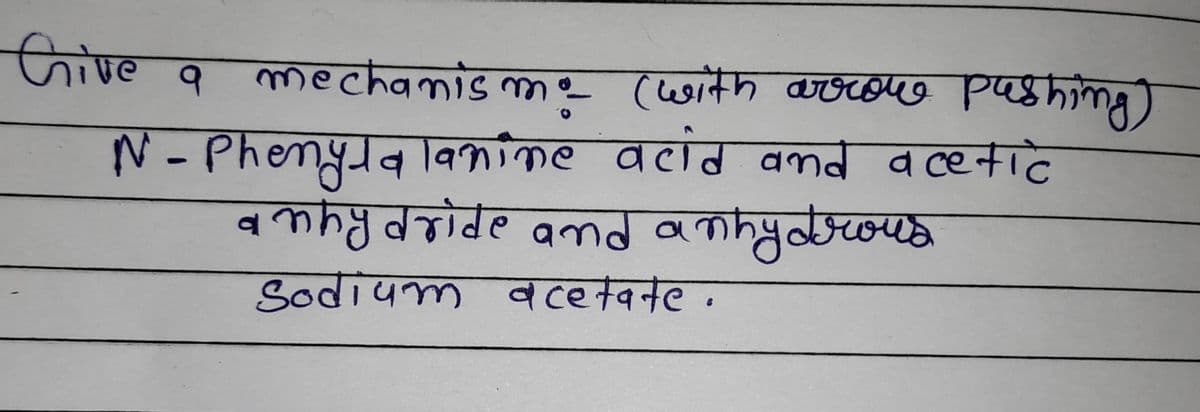 Give a mechanism: (with arrow pushing)
N-Phenylalanine acid and acetic
anhydride and anhydrous
Sodium acetate.